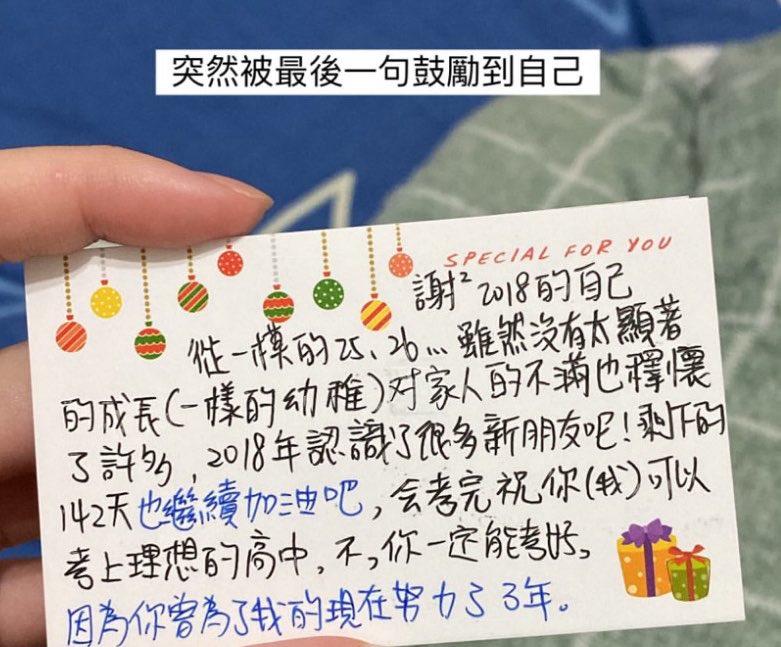 突然被最後一句鼓勵到自己
SPECIAL FOR YOU
謝² 2018的自己
從一模的25、26...雖然沒有太顯著
的成長(一樣的幼稚)对家人的不滿也釋懷
了許多，2018年認識了很多新朋友吧！剩下的
142天也繼續加油吧，会考完祝你(我)可以
考上理想的高中，不，你一定能考好。
因為你曾為了我的現在努力了3年。